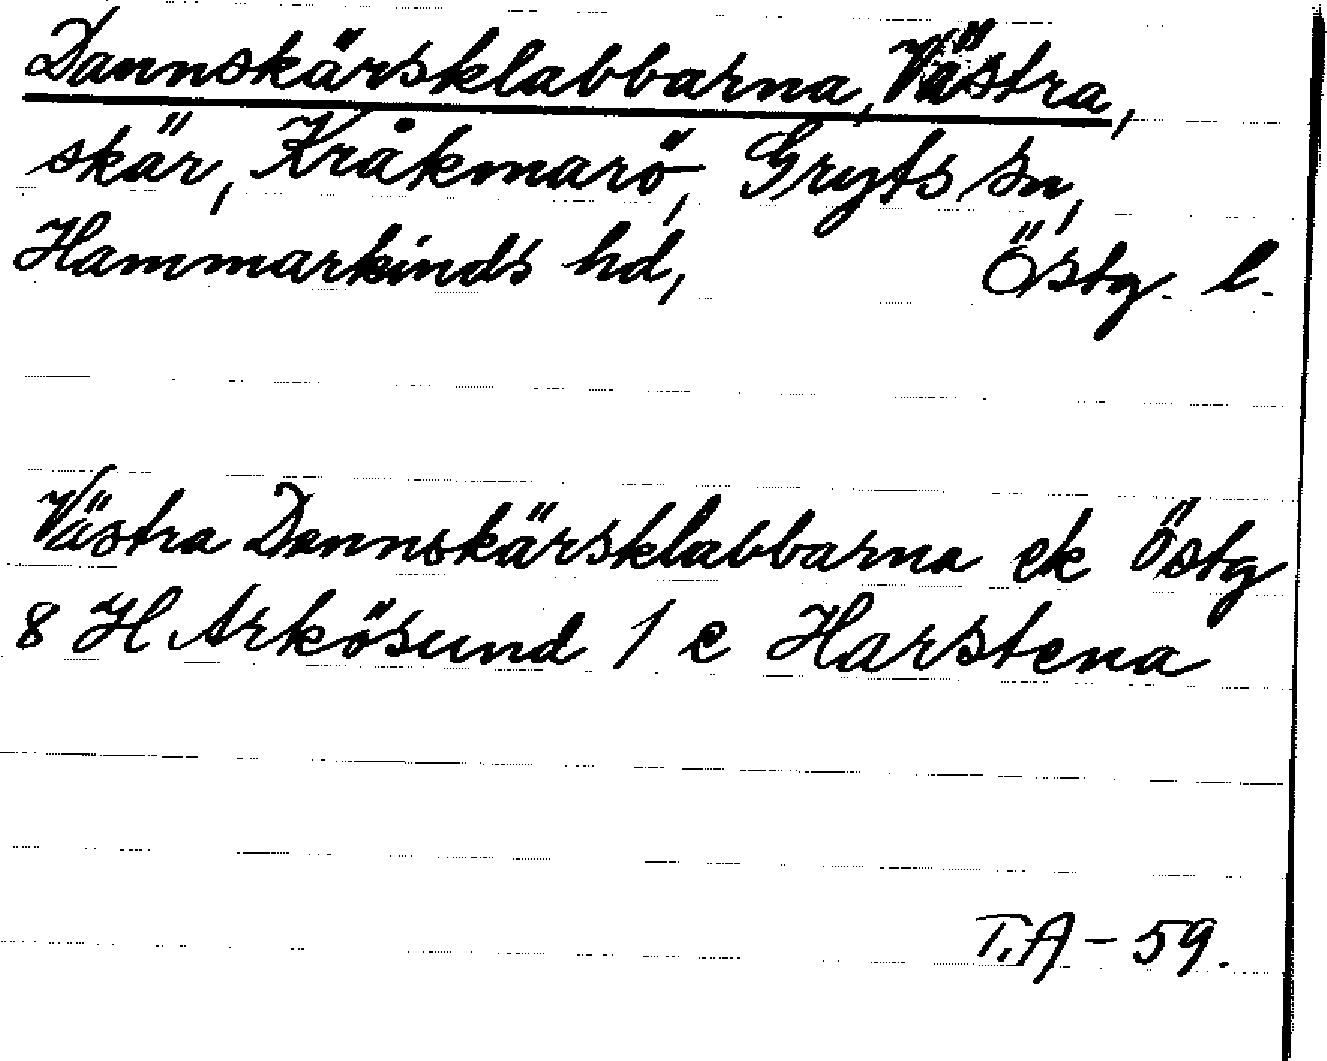 Dannskärsklabbarna, Västra,
skär, Kråkmarö, Gryts sn,
Hammarkinds hd, Östg. l.
Västra Dannskärsklabbarna ek Östg
8 H Arkösund / e Harstena
T.A - 59.